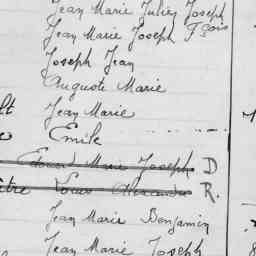 Jean Marie Julien Joseph
Jean Marie Joseph Fçois
Joseph Jean
Auguste Marie
lt Jean Marie
e Emile
Edouard Marie Joseph D
ître Louis Alexandre R.
Jean Marie Benjamin
Jean Marie Joseph